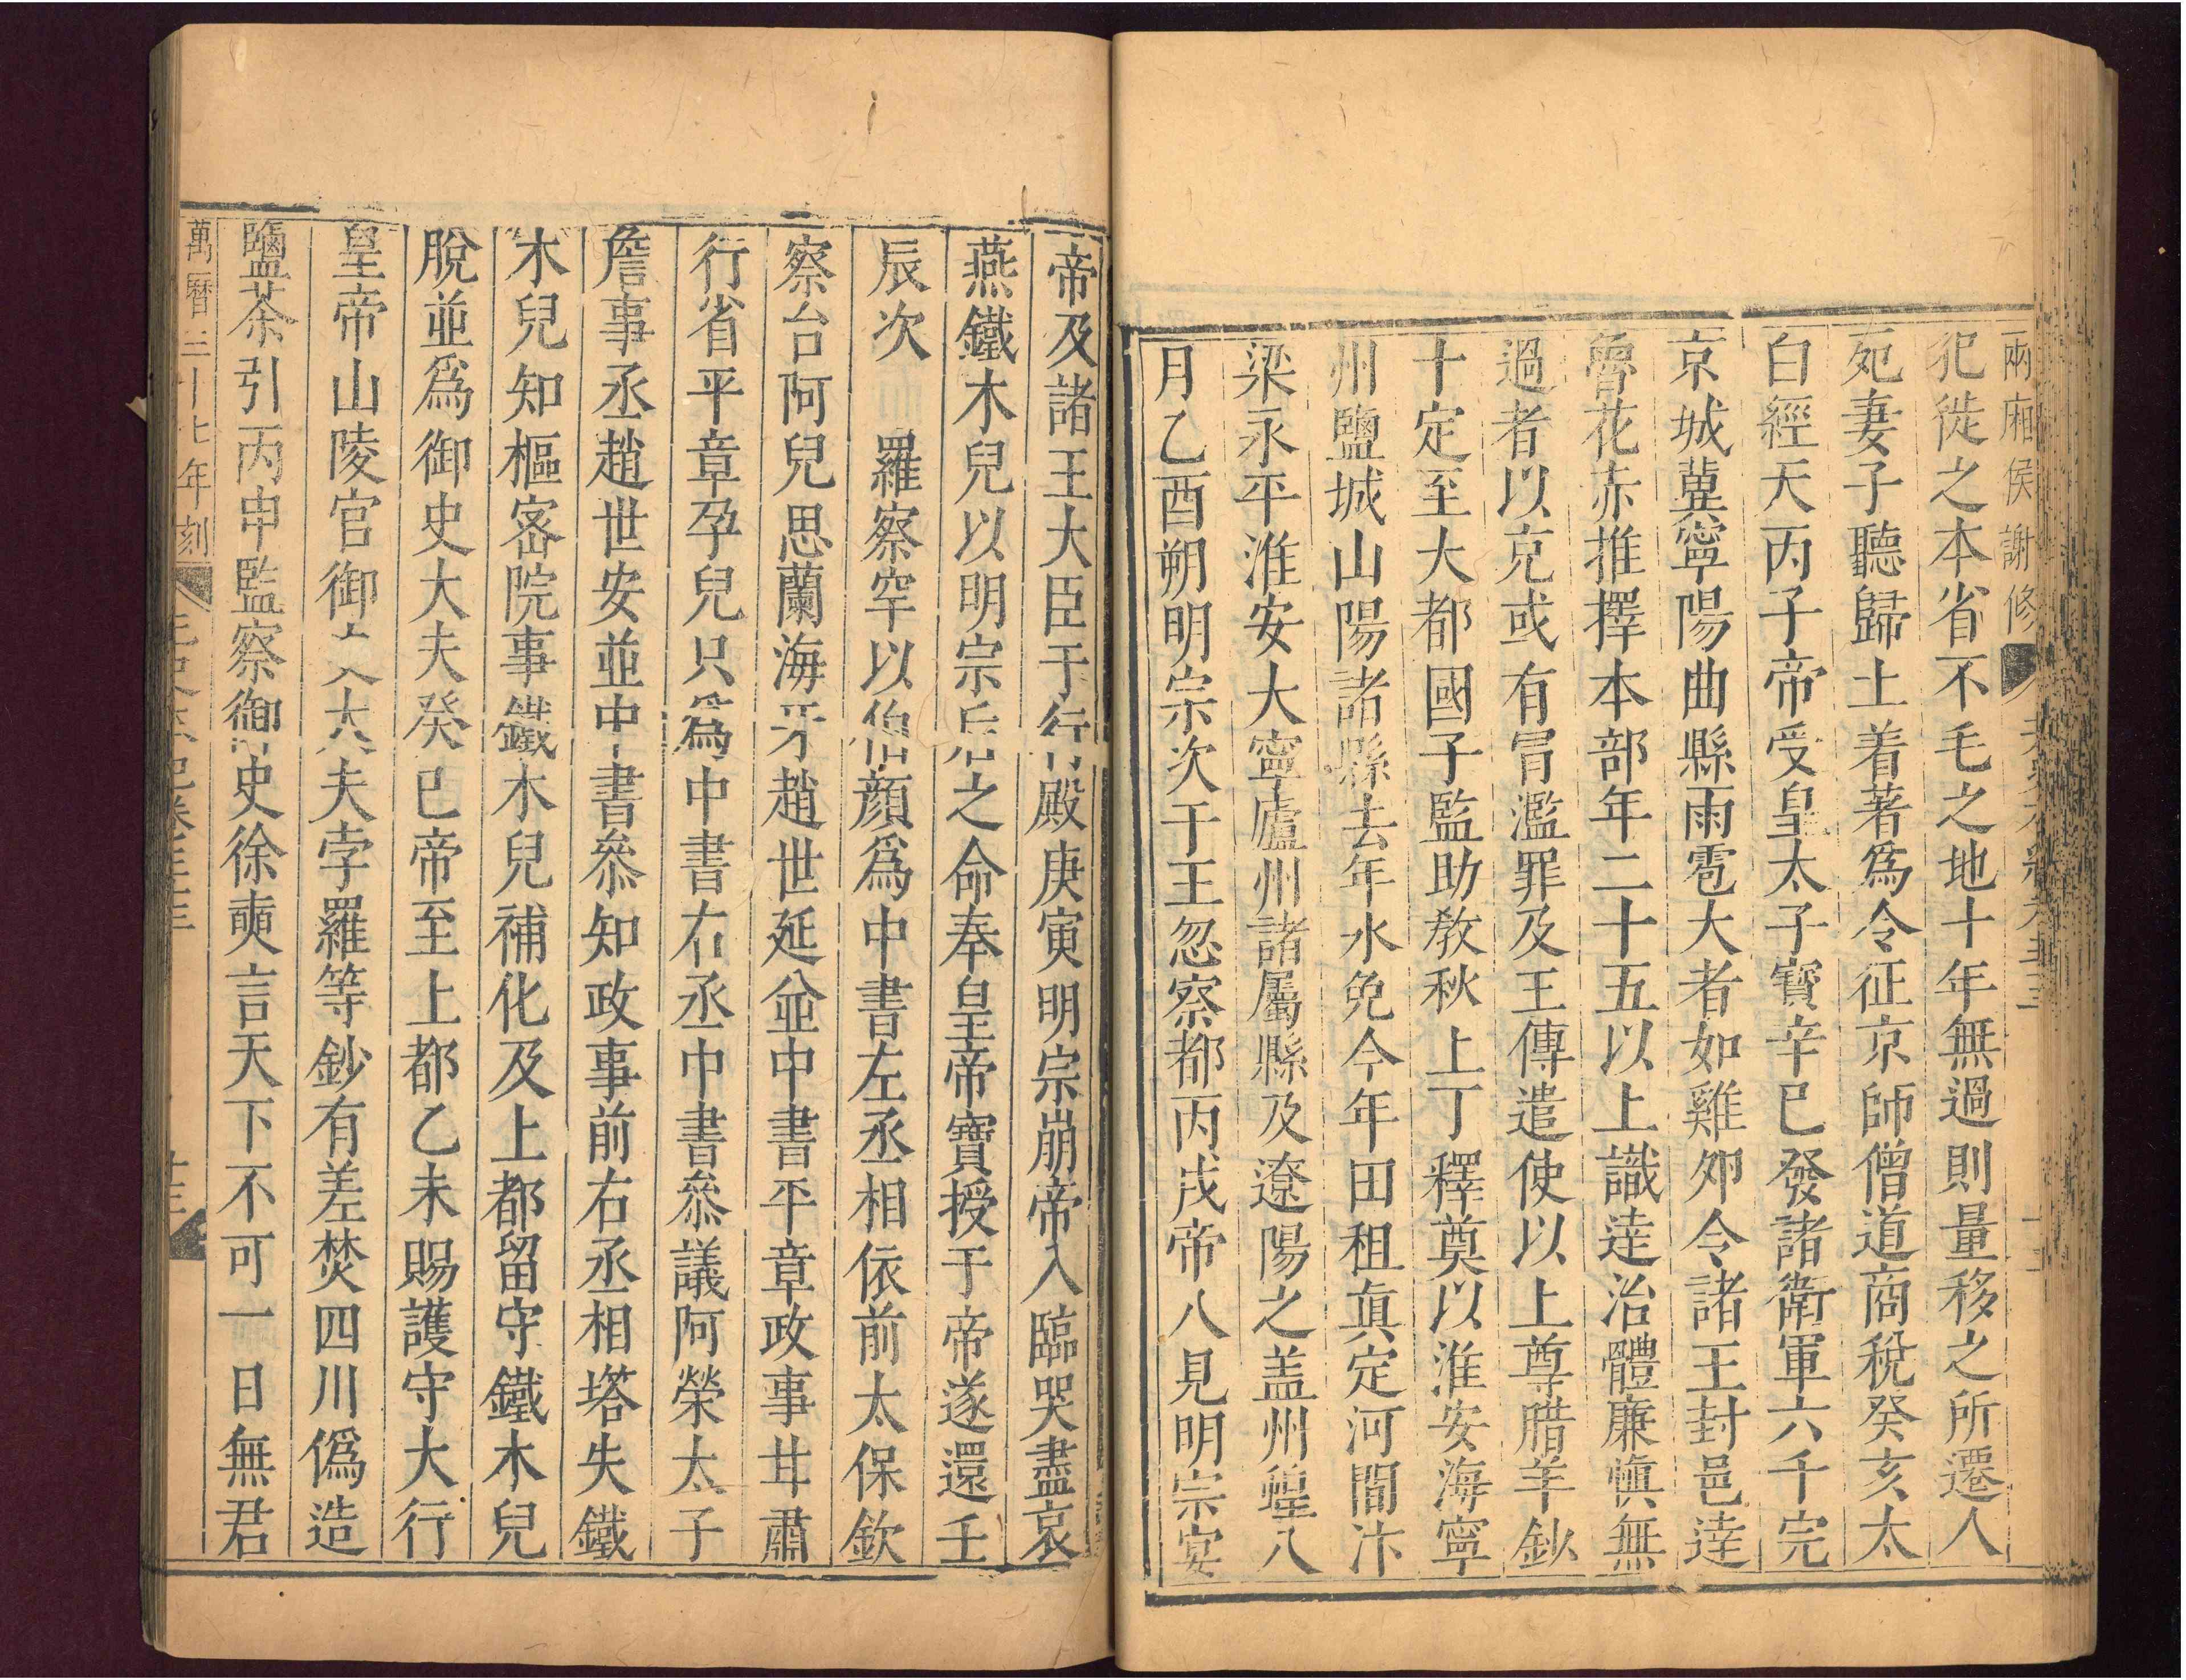 兩廂侯謝修
犯徙之本省不毛之地十年無過則量移之所遷人
死妻子聽歸土着著爲令征京師僧道商稅癸亥太
白經天丙子帝受皇太子寶辛巳發諸衛軍六千完
京城兾寧陽曲縣雨雹大者如雞夘令諸王封邑逹
魯花赤推擇本部年二十五以上識逹治體廉慎無
過者以充或有冐濫罪及王傳遣使以上尊腊羊鈔
十定至大都國子監助教秋上丁釋奠以淮安海寧
州鹽城山陽諸縣去年水免今年田租眞定河間汴
梁永平淮安大寧廬州諸屬縣及遼陽之盖州蝗八
月乙酉朔明宗次于王忽察都丙戌帝入見明宗宴
帝及諸王大臣于行殿庚寅明宗崩帝入臨哭盡哀
燕鐵木兒以明宗后之命奉皇帝寶授于帝遂還壬
辰次 羅察罕以伯顏爲中書左丞相依前太保欽
察台阿兒思蘭海牙趙世延並中書平章政事甘肅
行省平章孕兒只爲中書右丞中書叅議阿榮太子
詹事丞趙世安並中書叅知政事前右丞相塔失鐵
木兒知樞密院事鐵木兒補化及上都留守鐵木兒
脫並爲御史大夫癸巳帝至上都乙未賜護守大行
皇帝山陵官御 大夫孛羅等鈔有差焚四川僞造
鹽茶引丙申監察御史徐奭言天下不可一日無君
萬曆二十七年刻